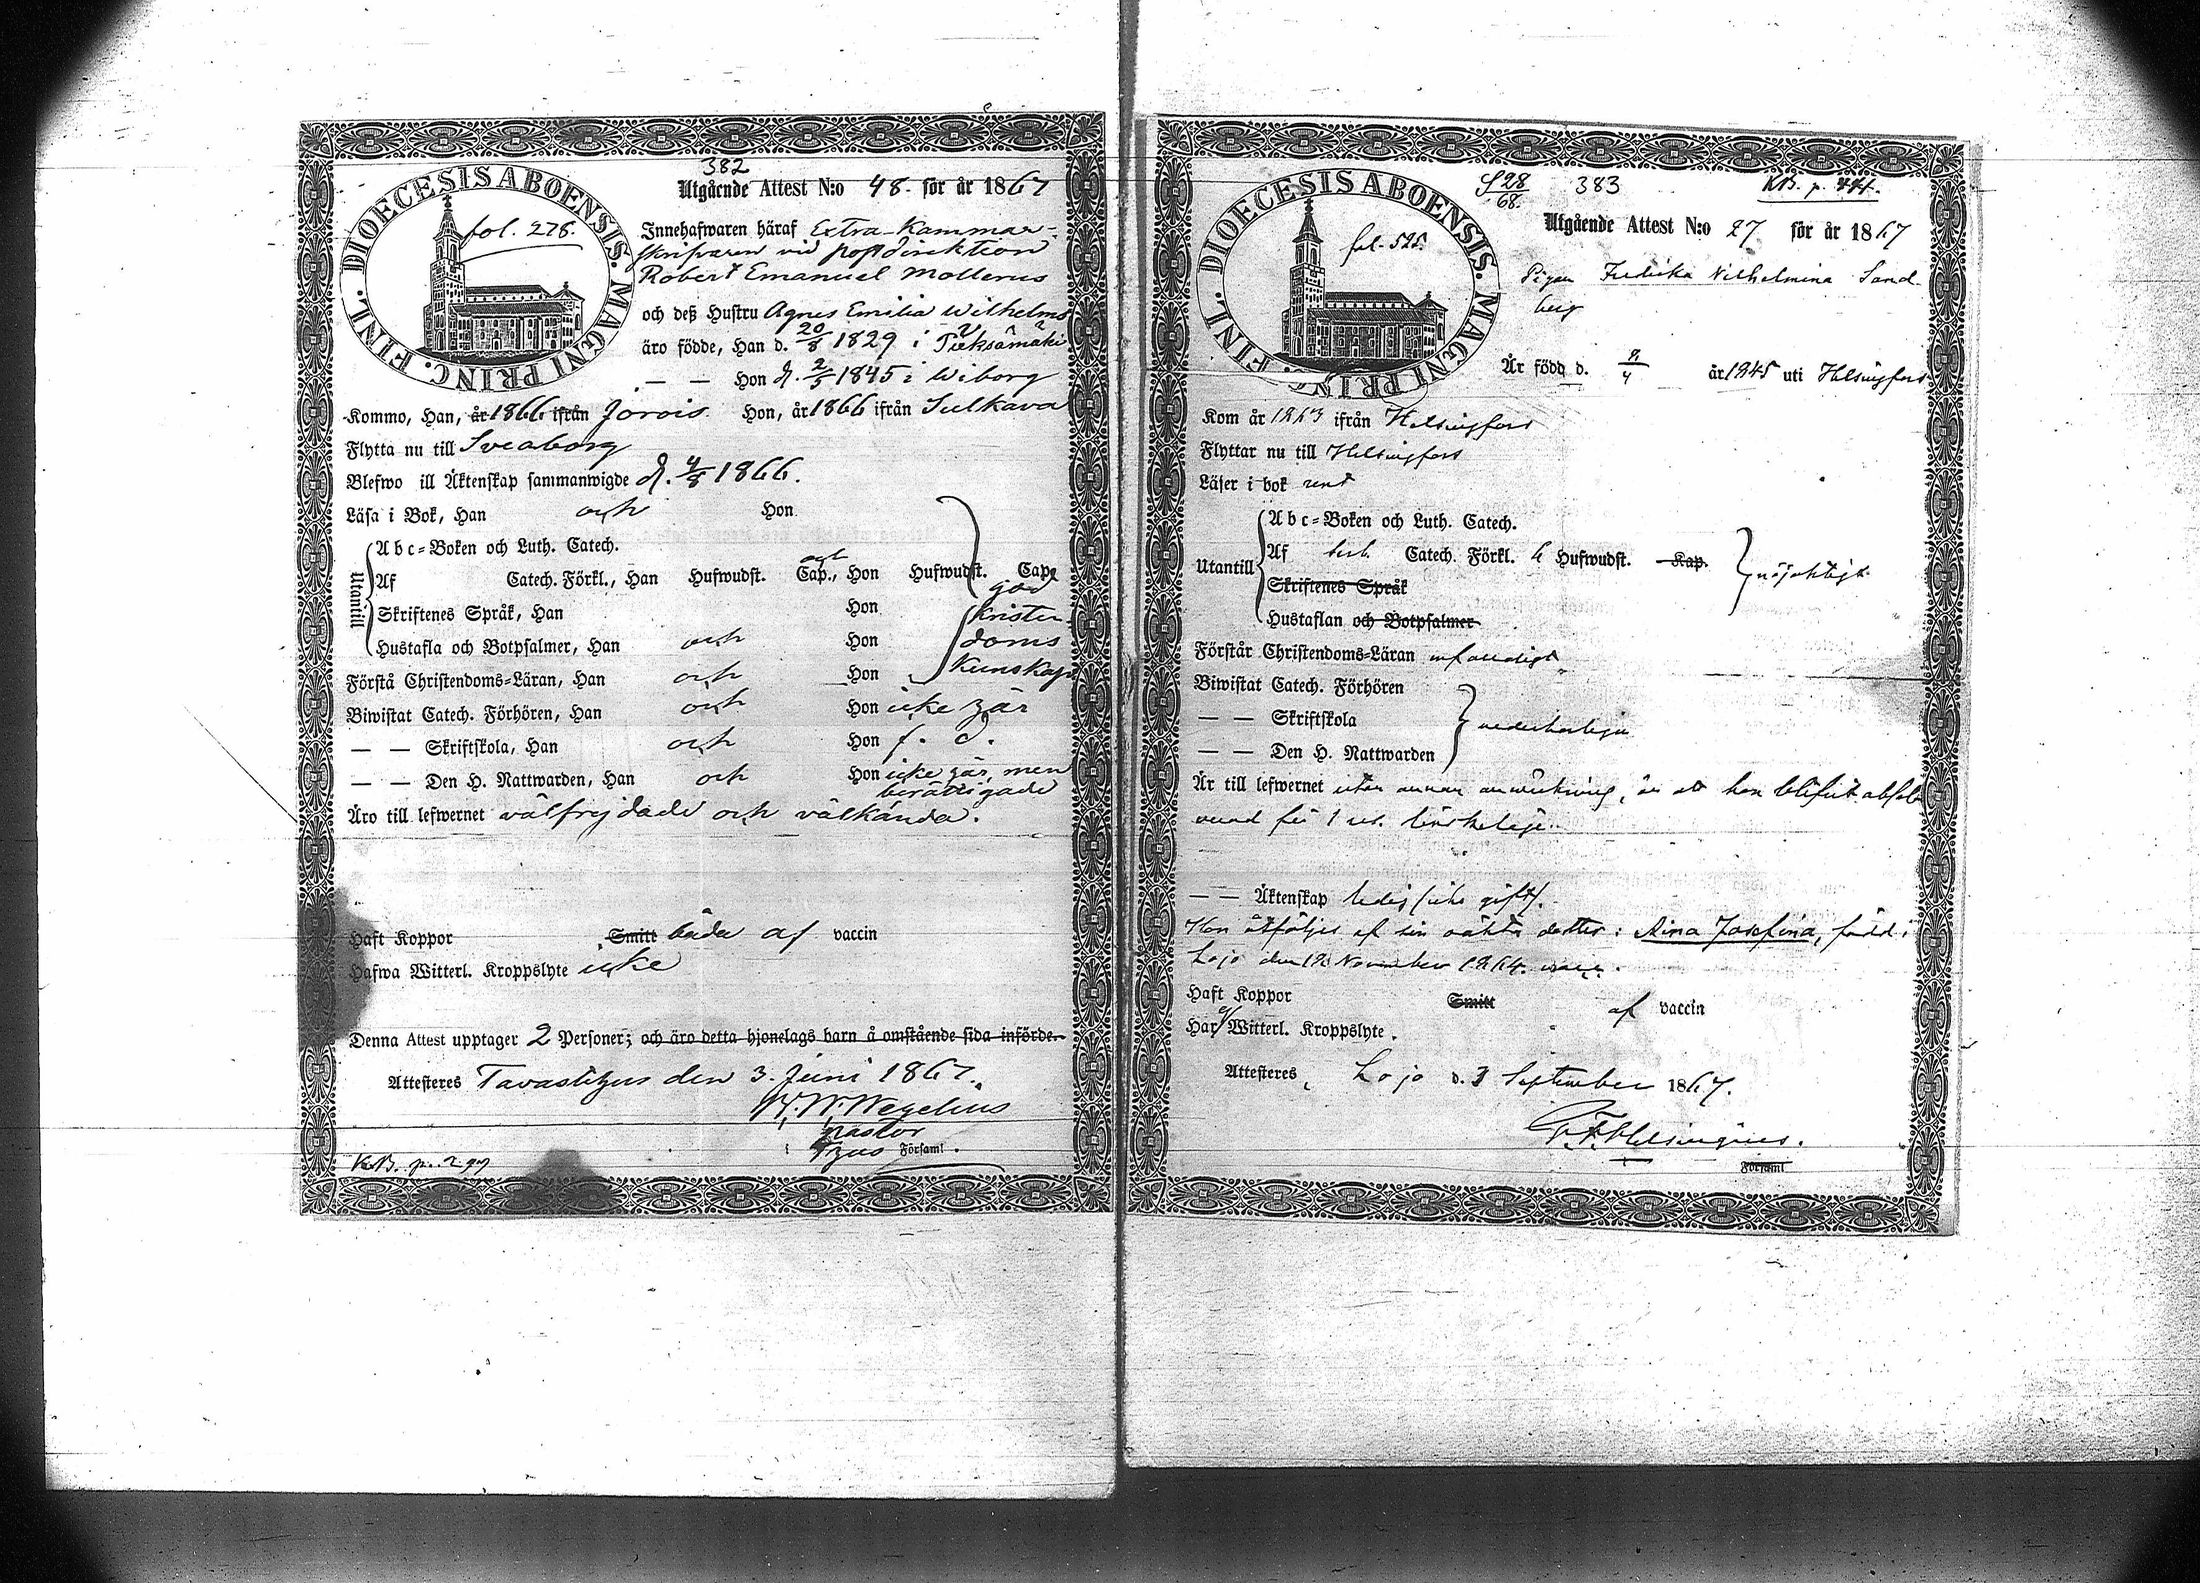 382
Utgående Attest N:o 48. för år 1867
DIOECESIS ABOENSIS. MAGNI PRINC. FINL.
fol. 276.
Innehafwaren häraf Extra-Kammar-
skrifvaren vid postdirektion
Robert Emanuel Mollerus
och deß Hustru Agnes Emilia Wilhelms
äro födde, Han d. 20/8 1829 i Pieksämäki
— — Hon d. 2/5 1845 i Wiborg
Kommo, Han, år 1866 ifrån Jorois Hon, år 1866 ifrån Sulkava
Flytta nu till Sveaborg
Blefwo ill Äktenskap sammanwigde d. 4/8 1866.
Läsa i Bok, Han och Hon
Utantill
Abc-Boken och Luth. Catech.
Af Catech. Förkl., Han Hufwudst. Cap., och Hon Hufwudst. Cap.
god
Skriftenes Språk, Han Hon kristen-
Hustafla och Botpsalmer, Han och Hon doms
Förstå Christendoms-Läran, Han och Hon kunskap
Biwistat Catech. Förhören, Han och Hon icke här
— — Skriftskola, Han och Hon f. d.
— — Den H. Nattwarden, Han och Hon icke här, men
berättigade
Äro till lefwernet välfrejdade och välkända.
Haft Koppor Smitt båda af vaccin
Hafwa Witterl. Kroppslyte icke
Denna Attest upptager 2 Personer; och äro detta hjonelags barn å omstående sida införde.
Attesteres Tavastehus den 3. Juni 1867.
Wegelius
pastor
i T:hus Församl.
KB. p.
S 28/68. 383 KB. p.
DIOECESIS ABOENSIS. MAGNI PRINC. FINL.
fol. 525.
Utgående Attest N:o 27 för år 1867
Pigan Fredrika Vilhelmina Sand-
berg
Är född d. 8/4 år 1845 uti Helsingfors
Kom år 1863 ifrån Helsingfors
Flyttar nu till Helsingfors
Läser i bok rent
Utantill
Abc-Boken och Luth. Catech.
Af Catech. Förkl. 6 Hufwudst. Kap. nöjaktigt
Skriftenes Språk
Hustaflan och Botpsalmer
Förstår Christendoms-Läran
Biwistat Catech. Förhören
— — Skriftskola vederbörligen
— — Den H. Nattwarden
Är till lefwernet utan annan anmärkning, än att hon blifvit absol-
verad för 1 res. lönskaläge.
— — Äktenskap ledig (icke gift).
Hon åtföljes af sin oäkta dotter: Aina Josefina, född i
Lojo den 18 November 1864.
Haft Koppor Smitt af vaccin
Har ej Witterl. Kroppslyte.
Attesteres, Lojo d. 3 September 1867.
Helsingius.
Församl